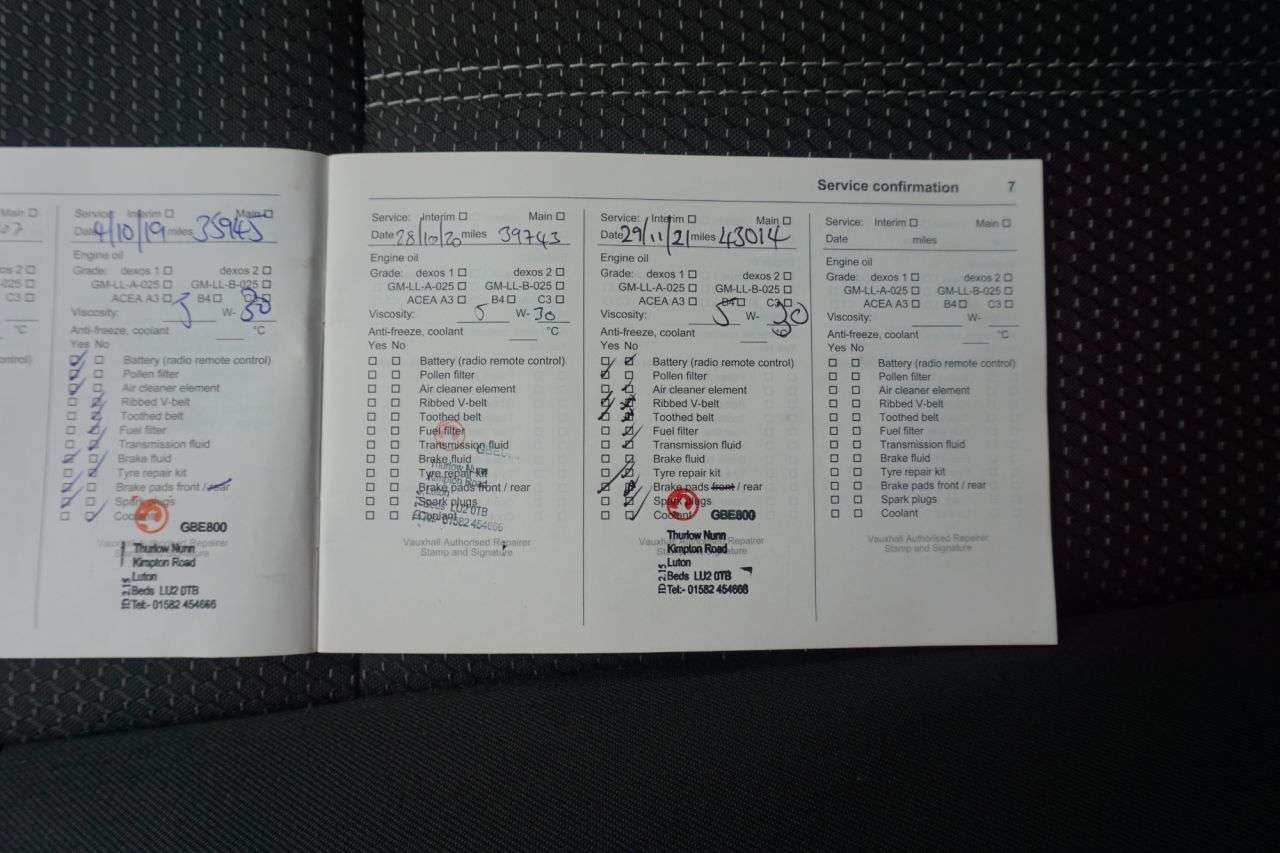 Service confirmation 7
Main
07
os 2
-025
C3
°C
control)
Service: Interim Main
Date 4/10/19 miles 35945
Engine oil
Grade: dexos 1 dexos 2
GM-LL-A-025 GM-LL-B-025
ACEA A3 B4 C3
Viscosity: 5 W- 30
Anti-freeze, coolant °C
Yes No
Battery (radio remote control)
Pollen filter
Air cleaner element
Ribbed V-belt
Toothed belt
Fuel filter
Transmission fluid
Brake fluid
Tyre repair kit
Brake pads front / rear
Spark plugs
Coolant
GBE800
Vauxhall Authorised Repairer
Stamp and Signature
Thurlow Nunn
Kimpton Road
Luton
Beds LU2 0TB
Tel:- 01582 454666
ID 2.15
Service: Interim Main
Date 28/10/20 miles 39743
Engine oil
Grade: dexos 1 dexos 2
GM-LL-A-025 GM-LL-B-025
ACEA A3 B4 C3
Viscosity: 5 W- 30
Anti-freeze, coolant °C
Yes No
Battery (radio remote control)
Pollen filter
Air cleaner element
Ribbed V-belt
Toothed belt
Fuel filter
Transmission fluid
Brake fluid
Tyre repair kit
Brake pads front / rear
Spark plugs
Coolant
Thurlow Nunn
Kimpton Road
Luton
Beds LU2 0TB
Tel:- 01582 454666
Vauxhall Authorised Repairer
Stamp and Signature
Service: Interim Main
Date 29/11/21 miles 43014
Engine oil
Grade: dexos 1 dexos 2
GM-LL-A-025 GM-LL-B-025
ACEA A3 B4 C3
Viscosity: 5 W- 30
Anti-freeze, coolant °C
Yes No
Battery (radio remote control)
Pollen filter
Air cleaner element
Ribbed V-belt
Toothed belt
Fuel filter
Transmission fluid
Brake fluid
Tyre repair kit
Brake pads front / rear
Spark plugs
Coolant
GBE800
Vauxhall Authorised Repairer
Stamp and Signature
Thurlow Nunn
Kimpton Road
Luton
Beds LU2 0TB
Tel:- 01582 454666
ID 2.15
Service: Interim Main
Date miles
Engine oil
Grade: dexos 1 dexos 2
GM-LL-A-025 GM-LL-B-025
ACEA A3 B4 C3
Viscosity: W-
Anti-freeze, coolant °C
Yes No
Battery (radio remote control)
Pollen filter
Air cleaner element
Ribbed V-belt
Toothed belt
Fuel filter
Transmission fluid
Brake fluid
Tyre repair kit
Brake pads front / rear
Spark plugs
Coolant
Vauxhall Authorised Repairer
Stamp and Signature